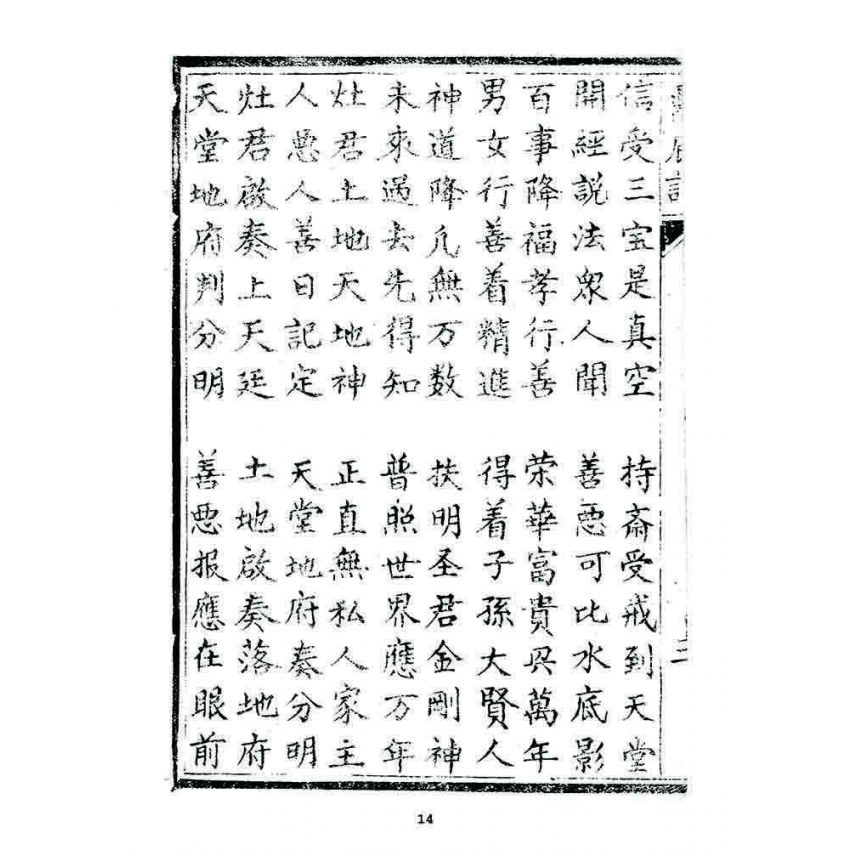 信受三宝是真空 持斎受戒到天堂
開經説法衆人聞 善悪可比水底影
百事降福孝行善 荣華富貴只萬年
男女行善着精進 得着子孫大賢人
神道降凡無万数 扶明圣君金剛神
未來過去先得知 普照世界應万年
灶君土地天地神 正直無私人家主
人悪人善日記定 天堂地府奏分明
灶君啟奏上天廷 土地啟奏落地府
天堂地府判分明 善悪报應在眼前
14